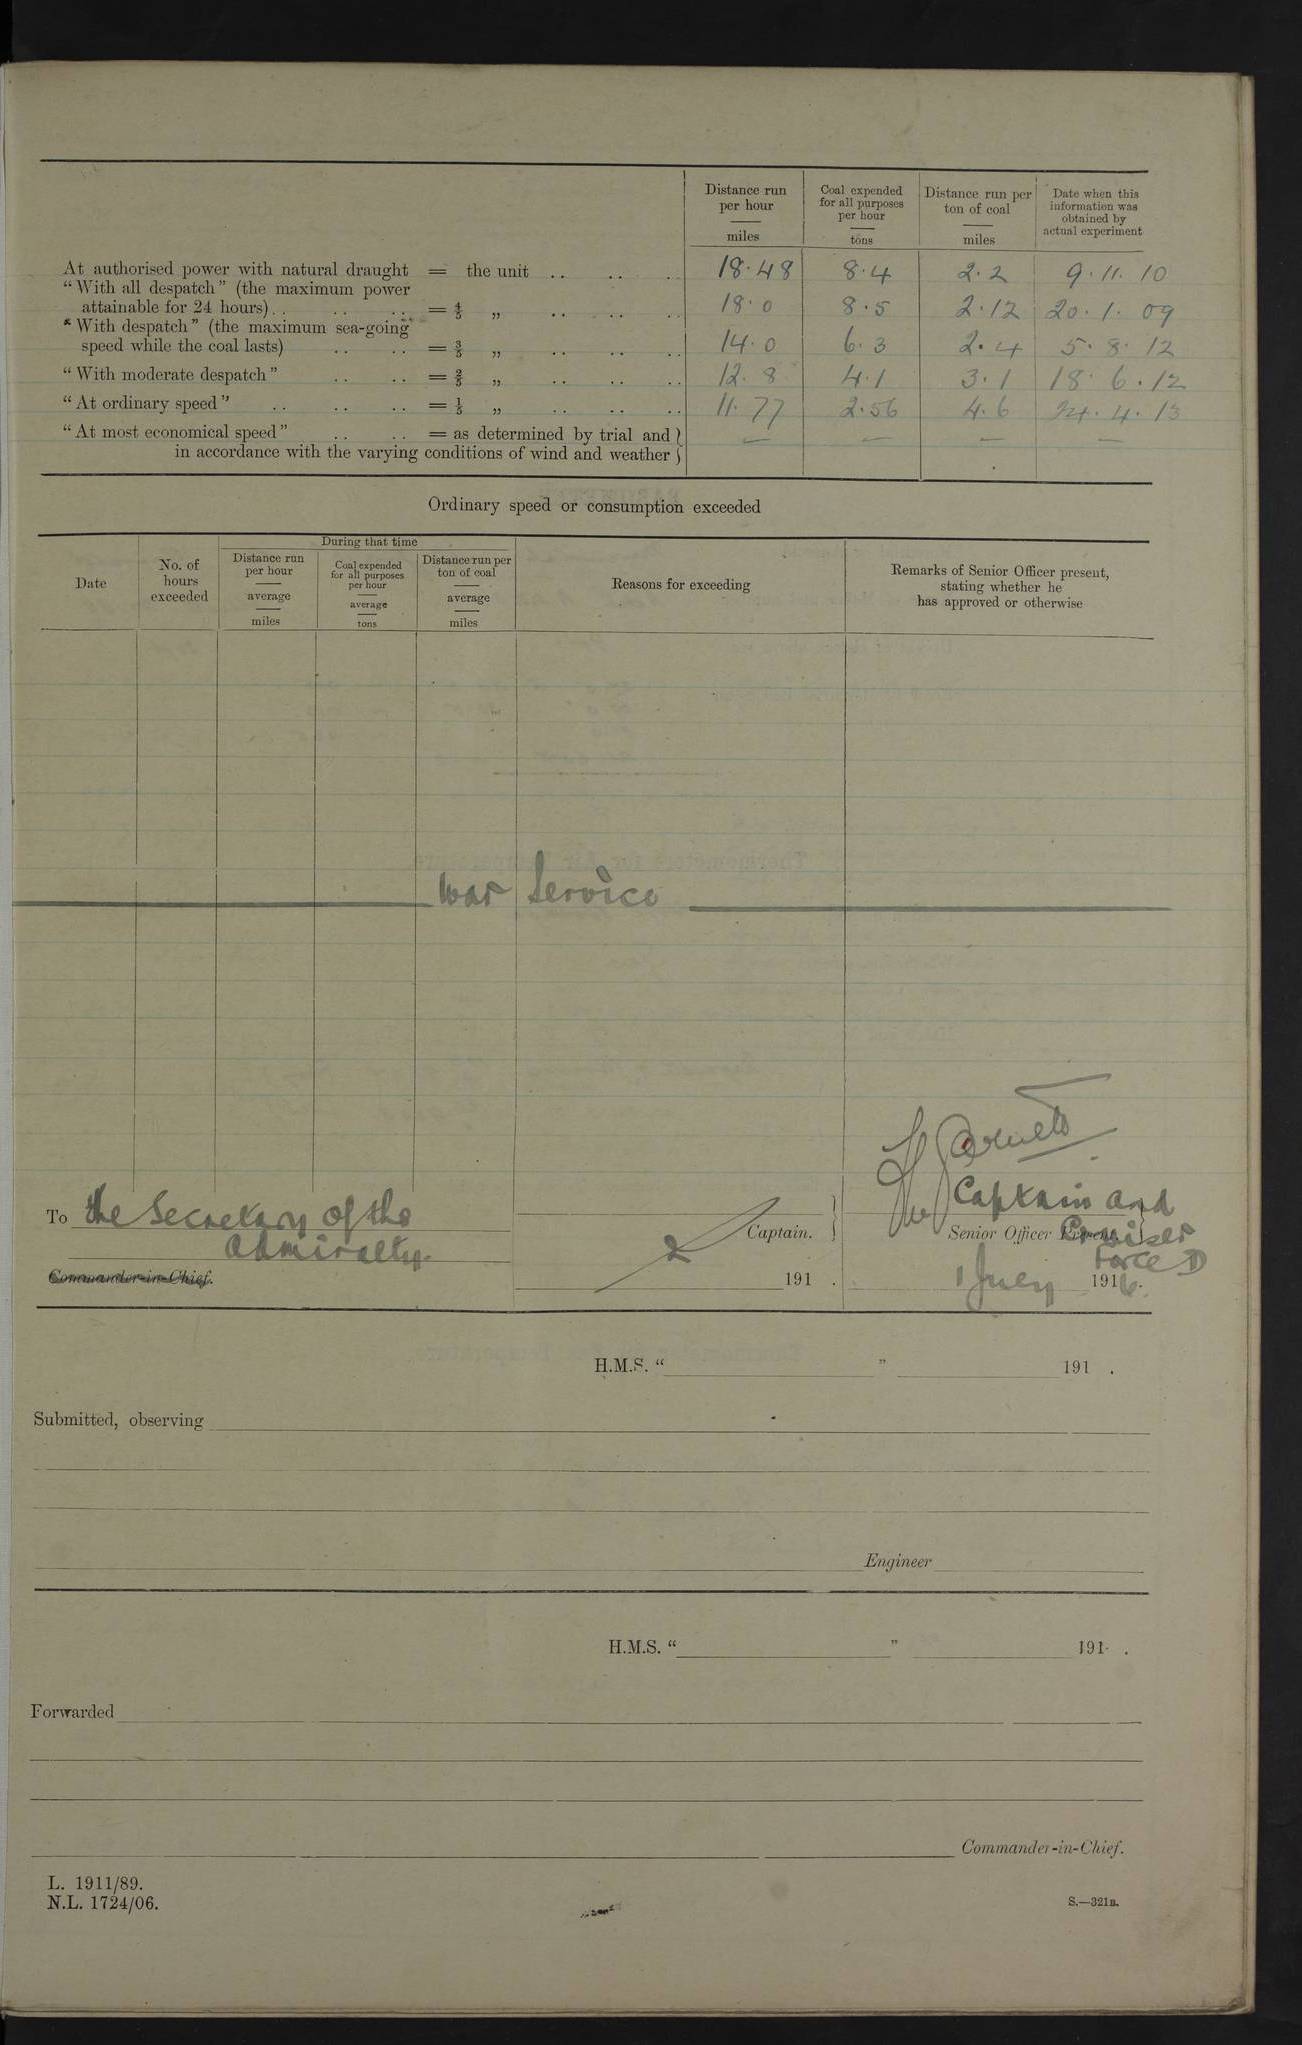 Distance run per hour — miles
Coal expended for all purposes per hour — tons
Distance run per ton of coal — miles
Date when this information was obtained by actual experiment
At authorised power with natural draught = the unit .. .. .. 18.48 8.4 2.2 9.11.10
“With all despatch” (the maximum power
attainable for 24 hours) .. .. .. = 4/5 „ .. .. .. 18.0 8.5 2.12 20.1.09
“With despatch” (the maximum sea-going
speed while the coal lasts) .. .. = 3/5 „ .. .. .. 14.0 6.3 2.4 5.8.12
“With moderate despatch” .. .. = 2/5 „ .. .. .. 12.8 4.1 3.1 18.6.12
“At ordinary speed” .. .. .. = 1/5 „ .. .. .. 11.77 2.56 4.6 24.4.13
“At most economical speed” .. .. = as determined by trial and } — — — —
in accordance with the varying conditions of wind and weather }
Ordinary speed or consumption exceeded
Date
No. of hours exceeded
During that time
Distance run per hour — average — miles
Coal expended for all purposes per hour — average — tons
Distance run per ton of coal — average — miles
Reasons for exceeding
Remarks of Senior Officer present, stating whether he has approved or otherwise
War Service
To the Secretary of the
Admiralty.
Commander-in-Chief.
Captain.
191 .
Captain and
Senior Officer Present. Cruiser
Force D
1 July 1916.
H.M.S. “ ” 191 .
Submitted, observing
Engineer
H.M.S. “ ” 191 .
Forwarded
Commander-in-Chief.
L. 1911/89.
N.L. 1724/06.
S.—321B.